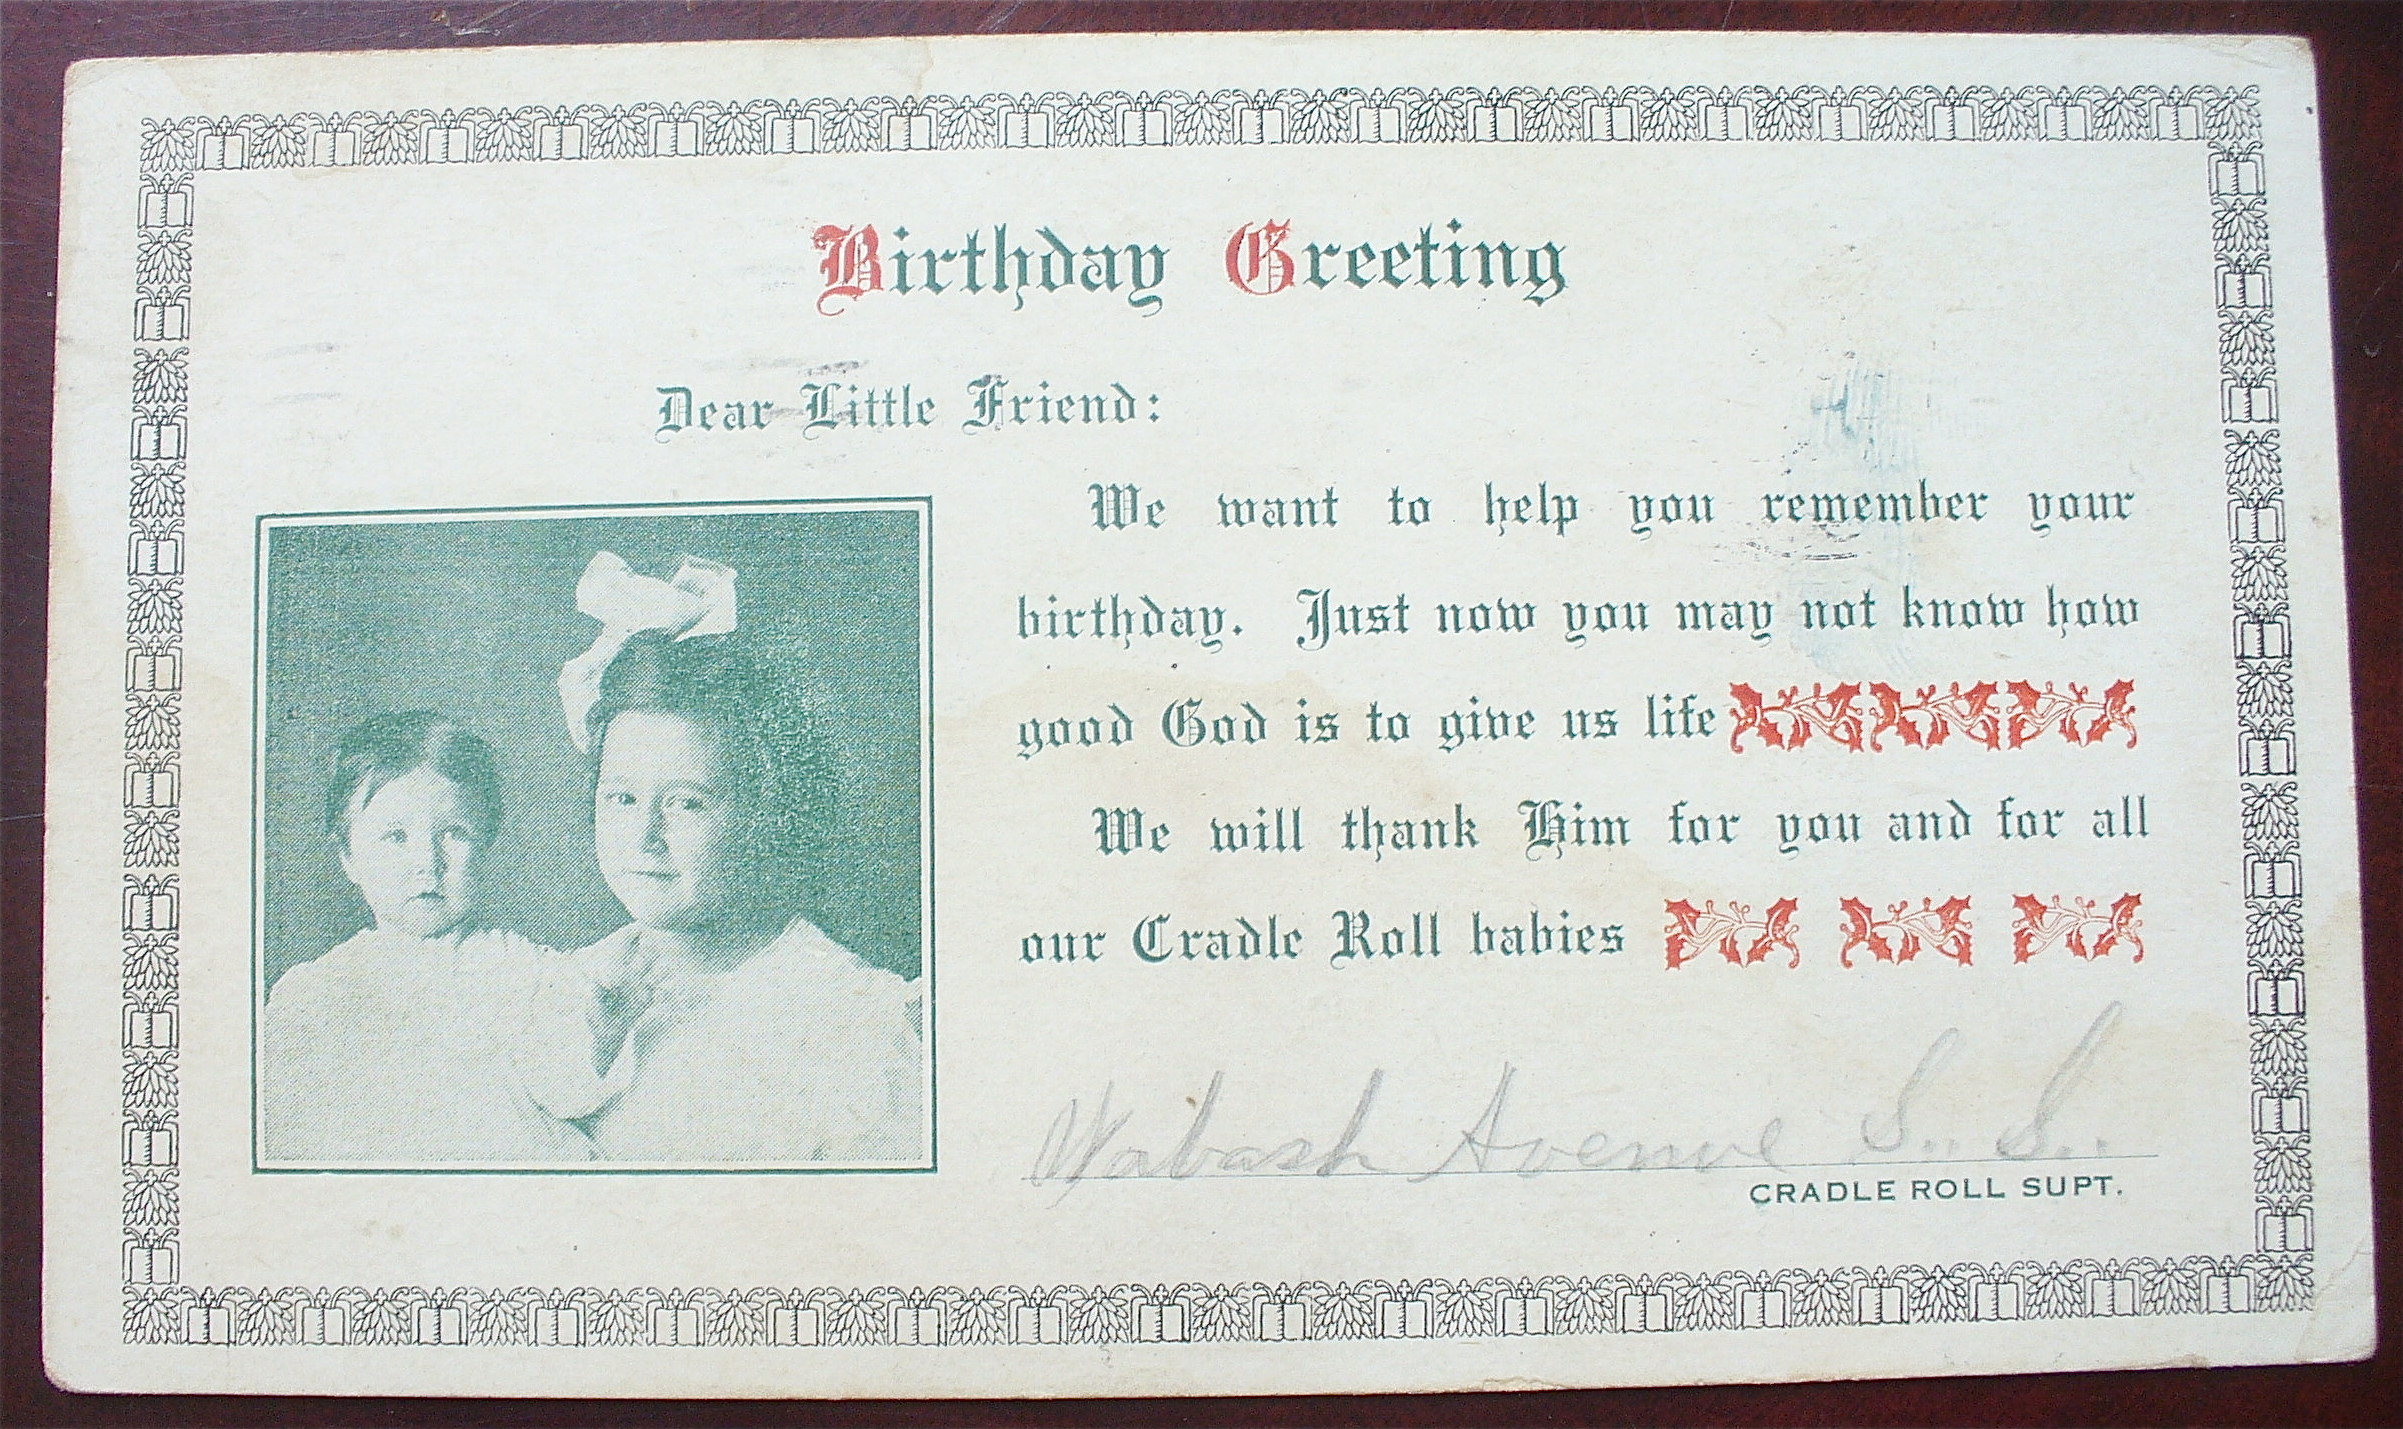 Birthday Greeting
Dear Little Friend:
We want to help you remember your
birthday. Just now you may not know how
good God is to give us life
We will thank Him for you and for all
our Cradle Roll babies
Wabash Avenue S. S.
CRADLE ROLL SUPT.